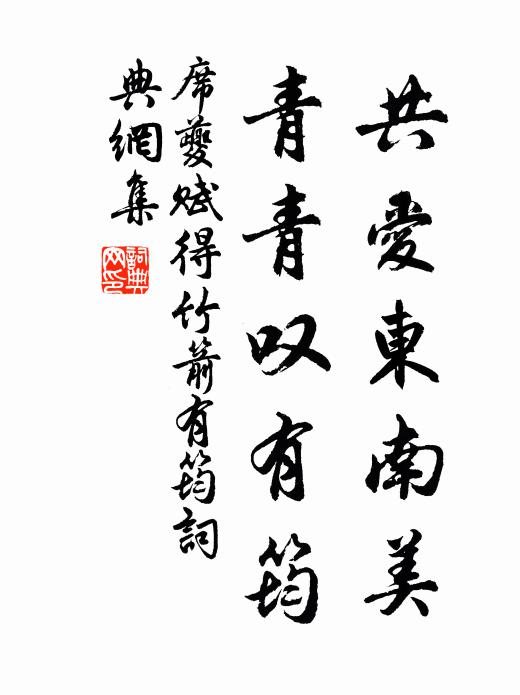 共愛東南美
青青叹有筠
席夔賦得竹箭有筠詞
典網集
詞典網印